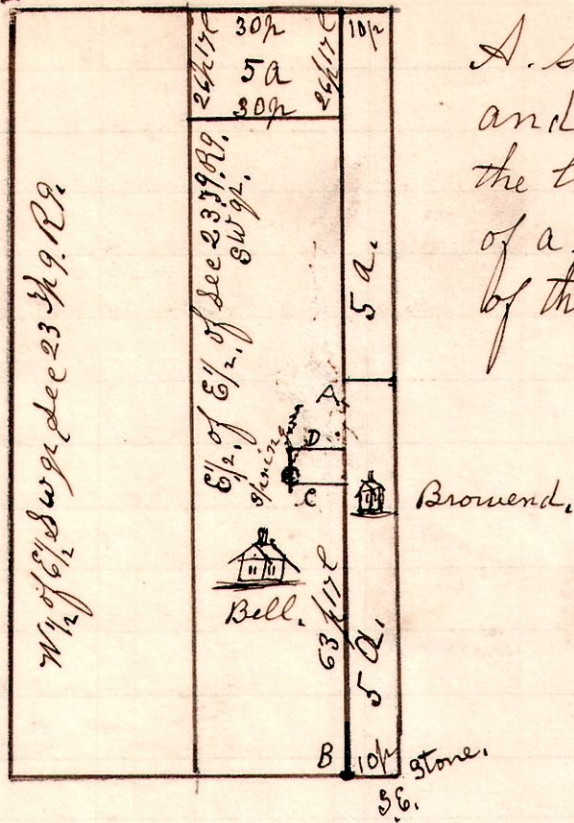 30p
26p 17l
5a
26p 17l
30p
10p
5a.
W 1/2 of E 1/2 Sw qr Sec 23 Tp 9. R 9.
E 1/2 of E 1/2 of Sec 23 T 9. R 9.
SW qr.
A
D
Spring
C
Bell.
63p 17l
5a.
B
10p
Stone.
SE.
Browend.
A. s
and
the t
of a
of th